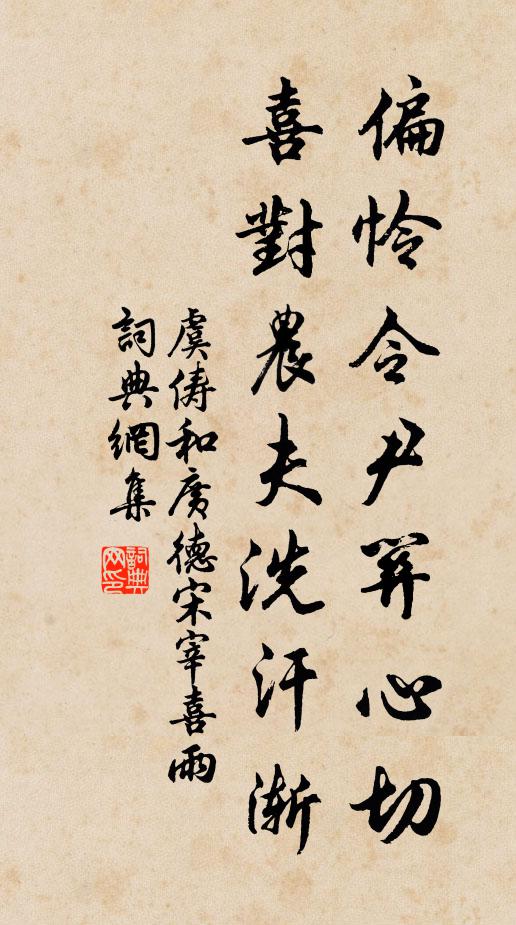 偏怜令尹關心切
喜對農夫洗汗漸
虞儔和廣德宋宰喜雨
詞典網集
詞典
网印